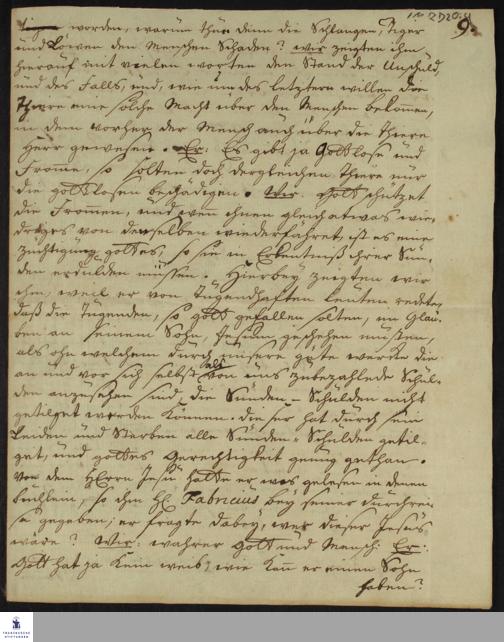 9.
worden, warum thun denn die Schlangen, Tiger
und Löwen den Menschen Schaden? wir zeigten ihm
hierauf mit vielen worten den Stand der Unschuld,
und des Falls, und, wie um des letztern willen die
Thiere eine solche Macht über den Menschen bekommen,
in dem vorher der Mensch auch über die Thiere
Herr gewesen. Er: Es gibt ja Gottlose und
Fromme, so solten doch dergleichen Thiere nur
die gottlosen beschädigen. Wir. Gott schützet
die Frommen, und wen ihnen gleich etwas wie-
driges von denselben wiederfähret, ist es eine
züchtigung gottes, so sie in Erkentniß ihrer Sün-
den erdulden müssen. Hierbey zeigten wir
ihm, weil er von Tugendhaften leuten redete,
daß die Tugenden, so gott gefallen solten, im Glau-
ben an seinem Sohn, Jesum geschehen müsten,
als ohn welchem durch unsere gute wercke die
an und vor sich selbst als von uns zubezahlende Schul-
den anzusehen sind, die Sünden-Schulden nicht
getilget werden können. dieser hat durch sein
Leiden und Sterben alle Sünden-Schulden getil-
get, und gottes Gerechtigkeit genug gethan.
Von dem HErrn Jesu hatte er was gelesen in denen
büchlein, so ihm H. Fabricius bey seiner durchrei-
se gegeben; er fragte dabey, wer dieser Jesus
wäre? Wir: wahrer Gott und Mensch. Er:
Gott hat ja kein weib, wie kan er einen Sohn
haben?
FRANCKESCHE
STIFTUNGEN